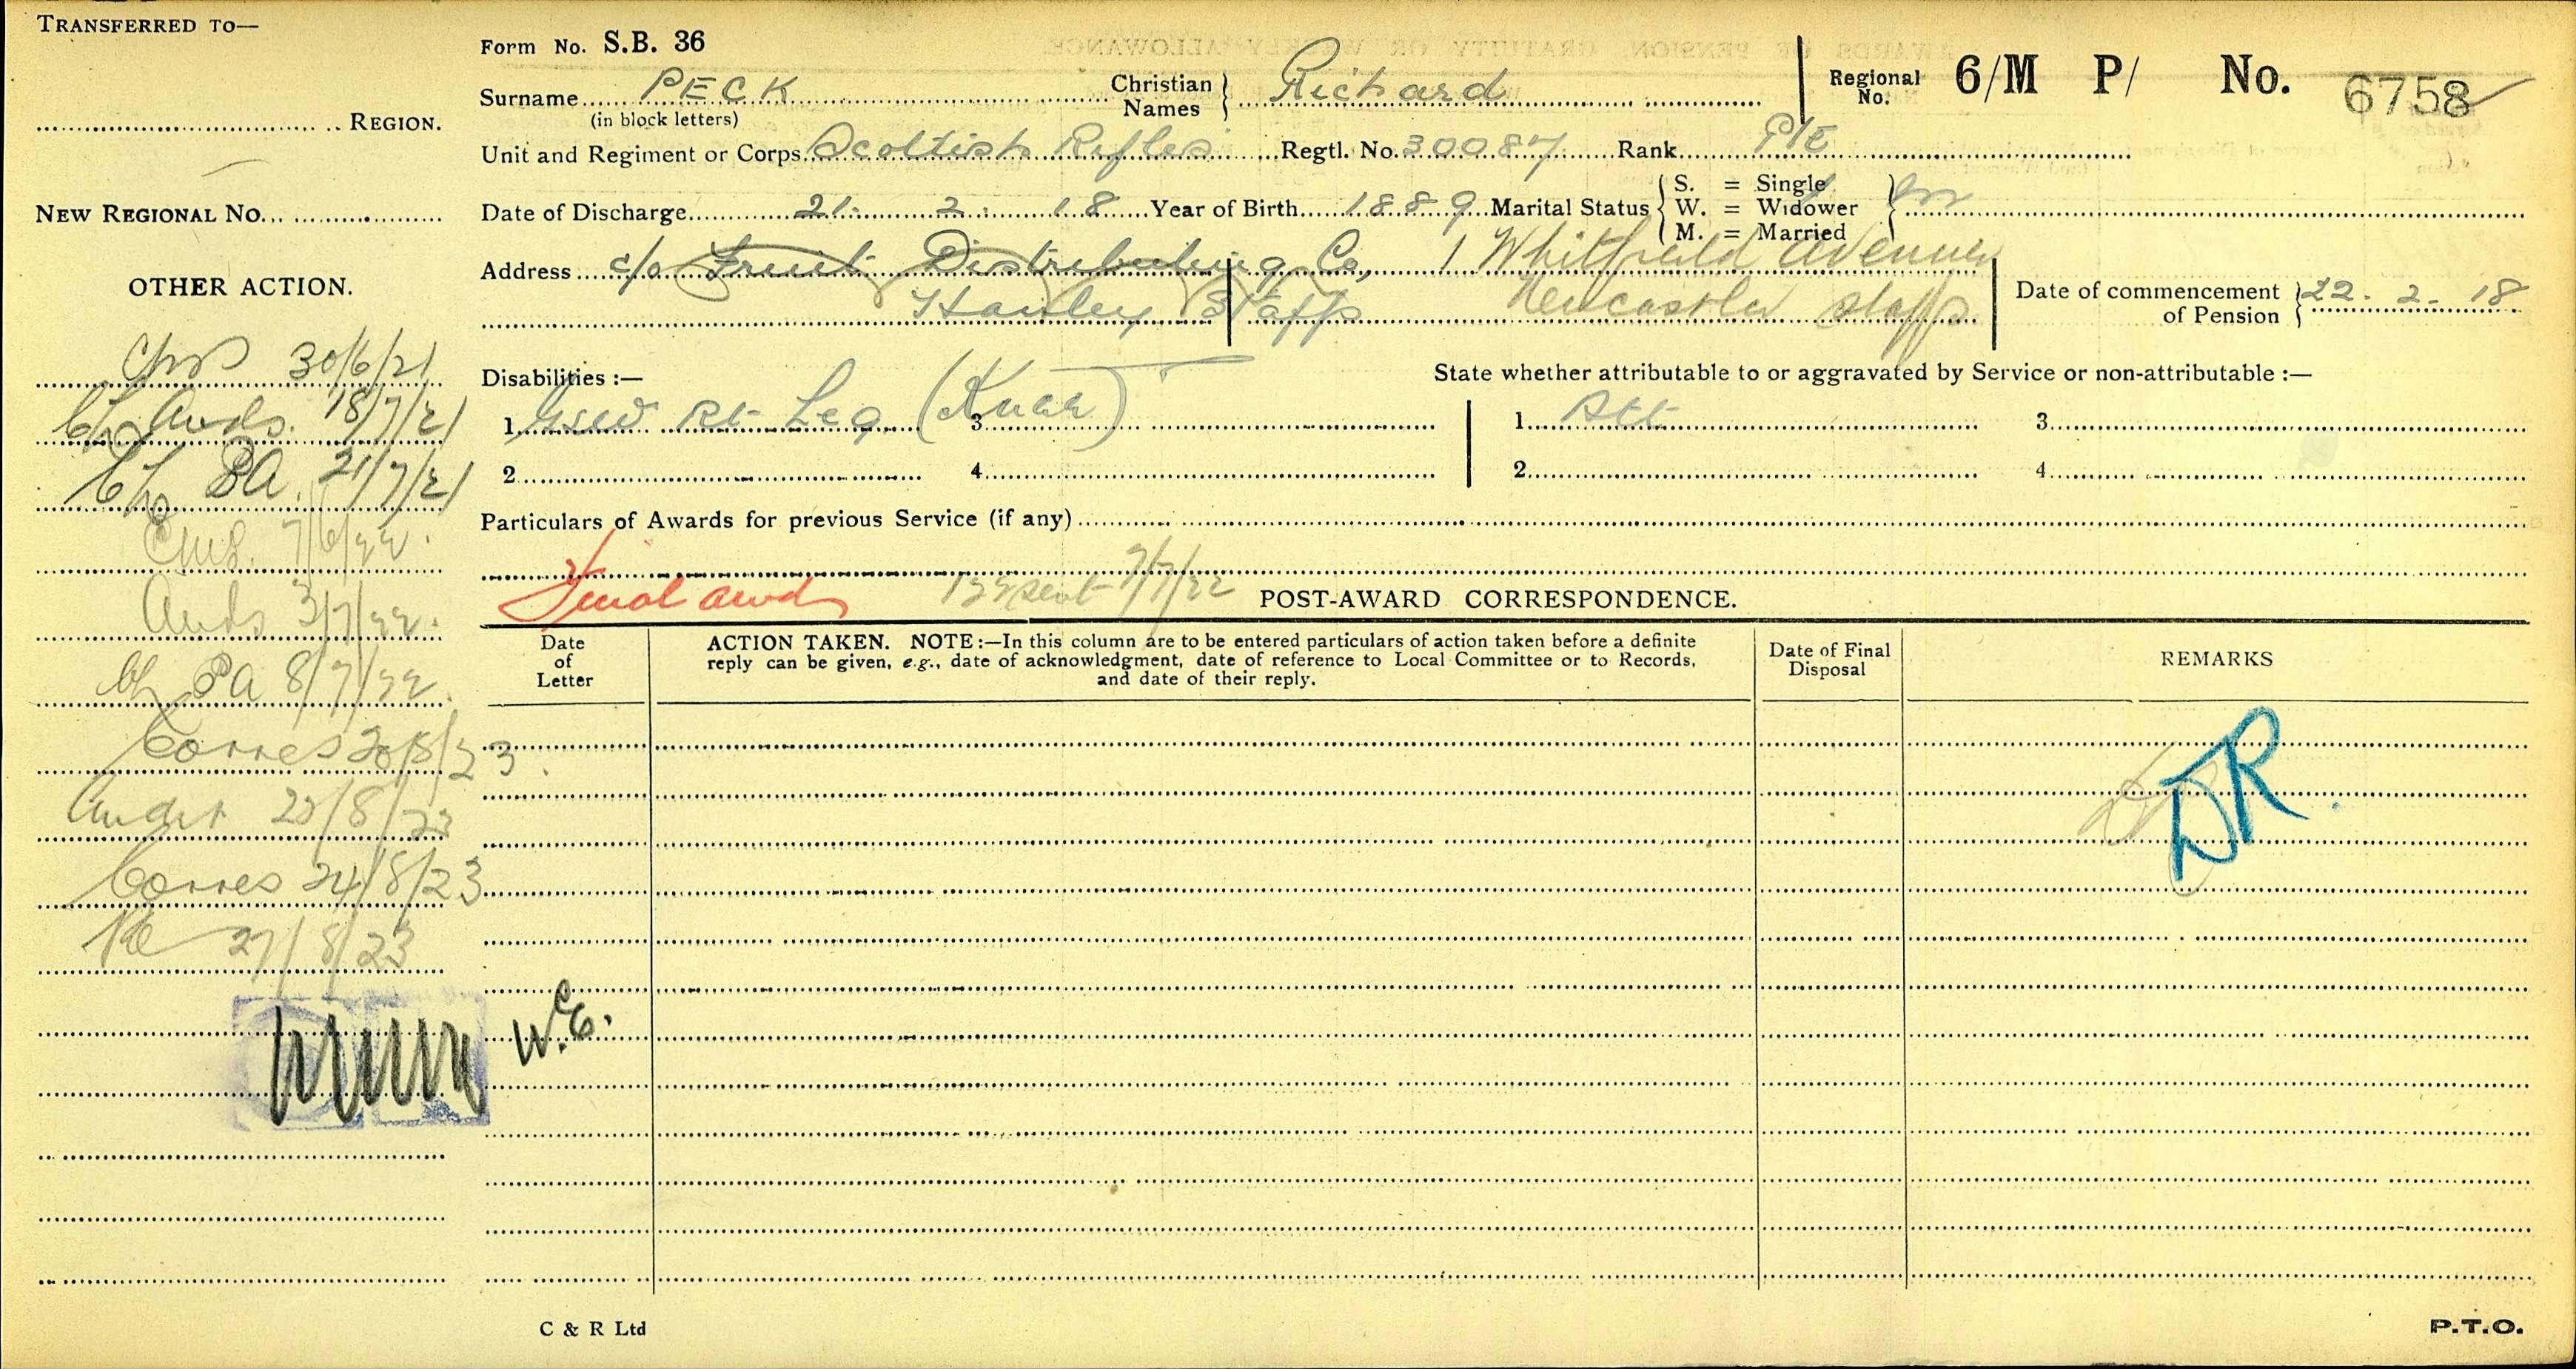 TRANSFERRED TO—
REGION.
NEW REGIONAL No.
OTHER ACTION.
30/6/21
Awds. 18/7/21
PA. 21/7/21
7/6/22.
Awds 3/7/22.
PA 8/7/22.
Corres 20/8/23.
23
Corres 24/8/23
27/8/23
Form No. S.B. 36
Surname PECK
(in block letters)
Christian Names Richard
Regional No. 6/M P/ No. 6758
Unit and Regiment or Corps Scottish Rifles Regtl. No. 30087 Rank Pte
Date of Discharge 21. 2. 18 Year of Birth 1889 Marital Status
S. = Single
W. = Widower
M. = Married
Address c/o Fruit Distributing Co, 1 Whitfield Avenue
Hanley Staffs Newcastle Staffs
Date of commencement of Pension 22. 2. 18
Disabilities :—
State whether attributable to or aggravated by Service or non-attributable :—
1 GSW Rt Leg (Knee) 3
1 Att 3
2 4
2 4
Particulars of Awards for previous Service (if any)
Final awd 7/7/22
POST-AWARD CORRESPONDENCE.
Date of Letter
ACTION TAKEN. NOTE :—In this column are to be entered particulars of action taken before a definite
reply can be given, e.g., date of acknowledgment, date of reference to Local Committee or to Records,
and date of their reply.
Date of Final Disposal
REMARKS
DR
C & R Ltd
P.T.O.